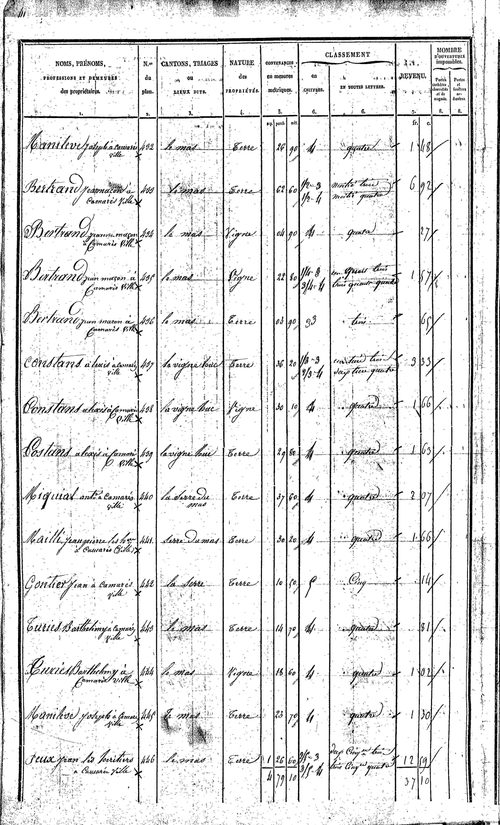 NOMS, PRÉNOMS, PROFESSIONS ET DEMEURES des propriétaires. N.os du plan. CANTONS, TRIAGES ou LIEUX DITS. NATURE des PROPRIÉTÉS. CONTENANCES en mesures métriques. CLASSEMENT en chiffres. EN TOUTES LETTRES. REVENU. NOMBRE D'OUVERTURES imposables.
1. 2. 3. 4. 5. 6. 6. 7. 8. 8.
Manilève Joseph à Camarès ville 432 le mas Terre 26 90 4 quatre 1 48
Bertrand jean maçon à Camarès ville 433 le mas Terre 62 60 1/2-3 1/2-4 moitié trois moitié quatre 6 92
Bertrand jean maçon à Camarès ville 434 le mas Vigne 04 90 4 quatre 27
Bertrand jean maçon à Camarès ville 435 le mas Vigne 22 80 1/4-3 3/4-4 un quart trois trois quarts quatre 1 57
Bertrand jean maçon à Camarès ville 436 le mas Terre 03 90 3 trois 65
Constans alexis à Camarès ville 437 la vigne Terre 36 20 1/3-3 2/3-4 un tiers trois deux tiers quatre 3 33
Constans alexis à Camarès ville 438 la vigne Vigne 30 10 4 quatre 1 66
Costans alexis à Camarès ville 439 la vigne Terre 29 80 4 quatre 1 63
Miquial ant. à Camarès ville 440 la Serre du mas Terre 37 60 4 quatre 2 07
Mailli jean pierre les h. à Camarès ville 441 Serre du mas Terre 30 20 4 quatre 1 66
Gontier Jean à Camarès ville 442 la Serre Terre 10 50 5 Cinq 14
Turiès Barthélemy à Camarès ville 443 le mas Terre 14 70 4 quatre 81
Turiès Barthélemy à Camarès ville 444 le mas Vigne 18 60 4 quatre 1 02
Manilève Joseph à Camarès ville 445 le mas Terre 23 70 4 quatre 1 30
Jeux jean les héritiers à Camarès ville 446 le mas Terre 1 26 60 2/5-3 3/5-4 deux Cinq. trois trois Cinq. quatre 12 59
4 79 10 37 10